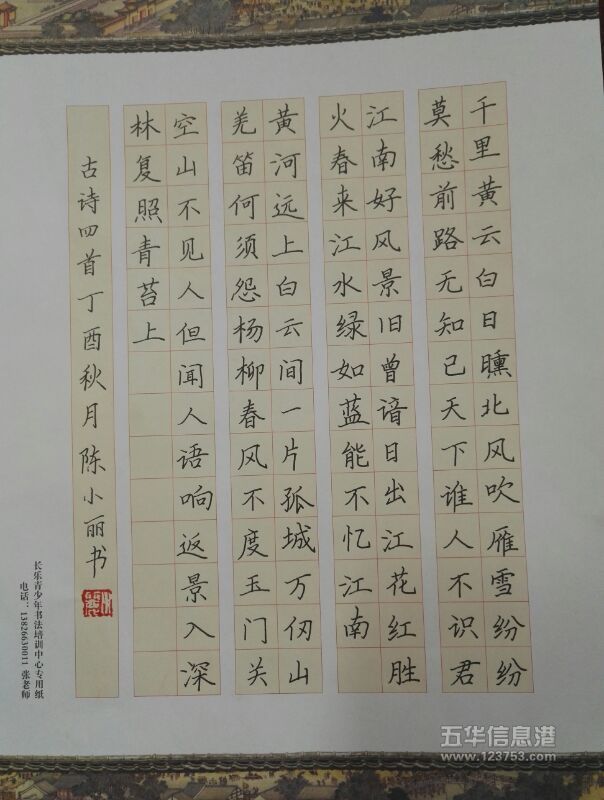 千里黄云白日曛北风吹雁雪纷纷
莫愁前路无知己天下谁人不识君
江南好风景旧曾谙日出江花红胜
火春来江水绿如蓝能不忆江南
黄河远上白云间一片孤城万仞山
羌笛何须怨杨柳春风不度玉门关
空山不见人但闻人语响返景入深
林复照青苔上
古诗四首丁酉秋月陈小丽书
长乐青少年书法培训中心专用纸
电话：13826630011 张老师
五华信息港
www.123753.com